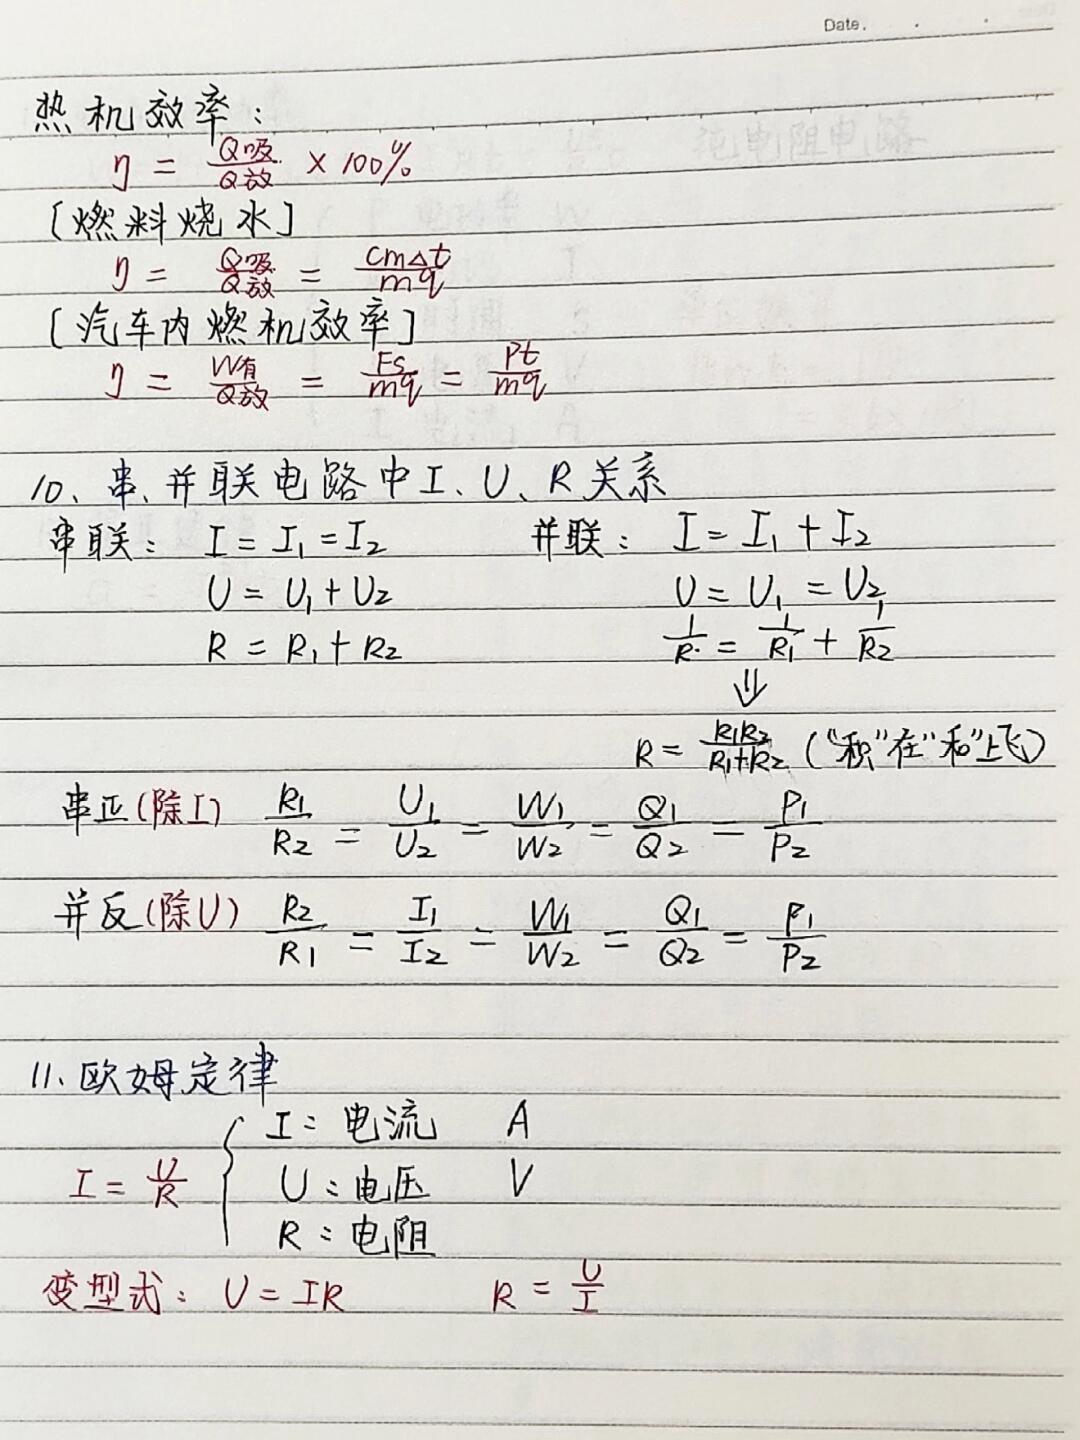 Date.
热机效率:
η = Q吸/Q放 × 100%
[燃料烧水]
η = Q吸/Q放 = cm△t/mq
[汽车内燃机效率]
η = W有/Q放 = Fs/mq = Pt/mq
10、串、并联电路中I、U、R关系
串联: I = I₁ = I₂ 并联: I = I₁ + I₂
U = U₁ + U₂ U = U₁ = U₂
R = R₁ + R₂ 1/R = 1/R₁ + 1/R₂
⇓
R = R₁R₂/R₁+R₂ ("积"在"和"上飞)
串正(除I) R₁/R₂ = U₁/U₂ = W₁/W₂ = Q₁/Q₂ = P₁/P₂
并反(除U) R₂/R₁ = I₁/I₂ = W₁/W₂ = Q₁/Q₂ = P₁/P₂
11、欧姆定律
I: 电流 A
I = U/R { U: 电压 V
R: 电阻
变型式: U = IR R = U/I